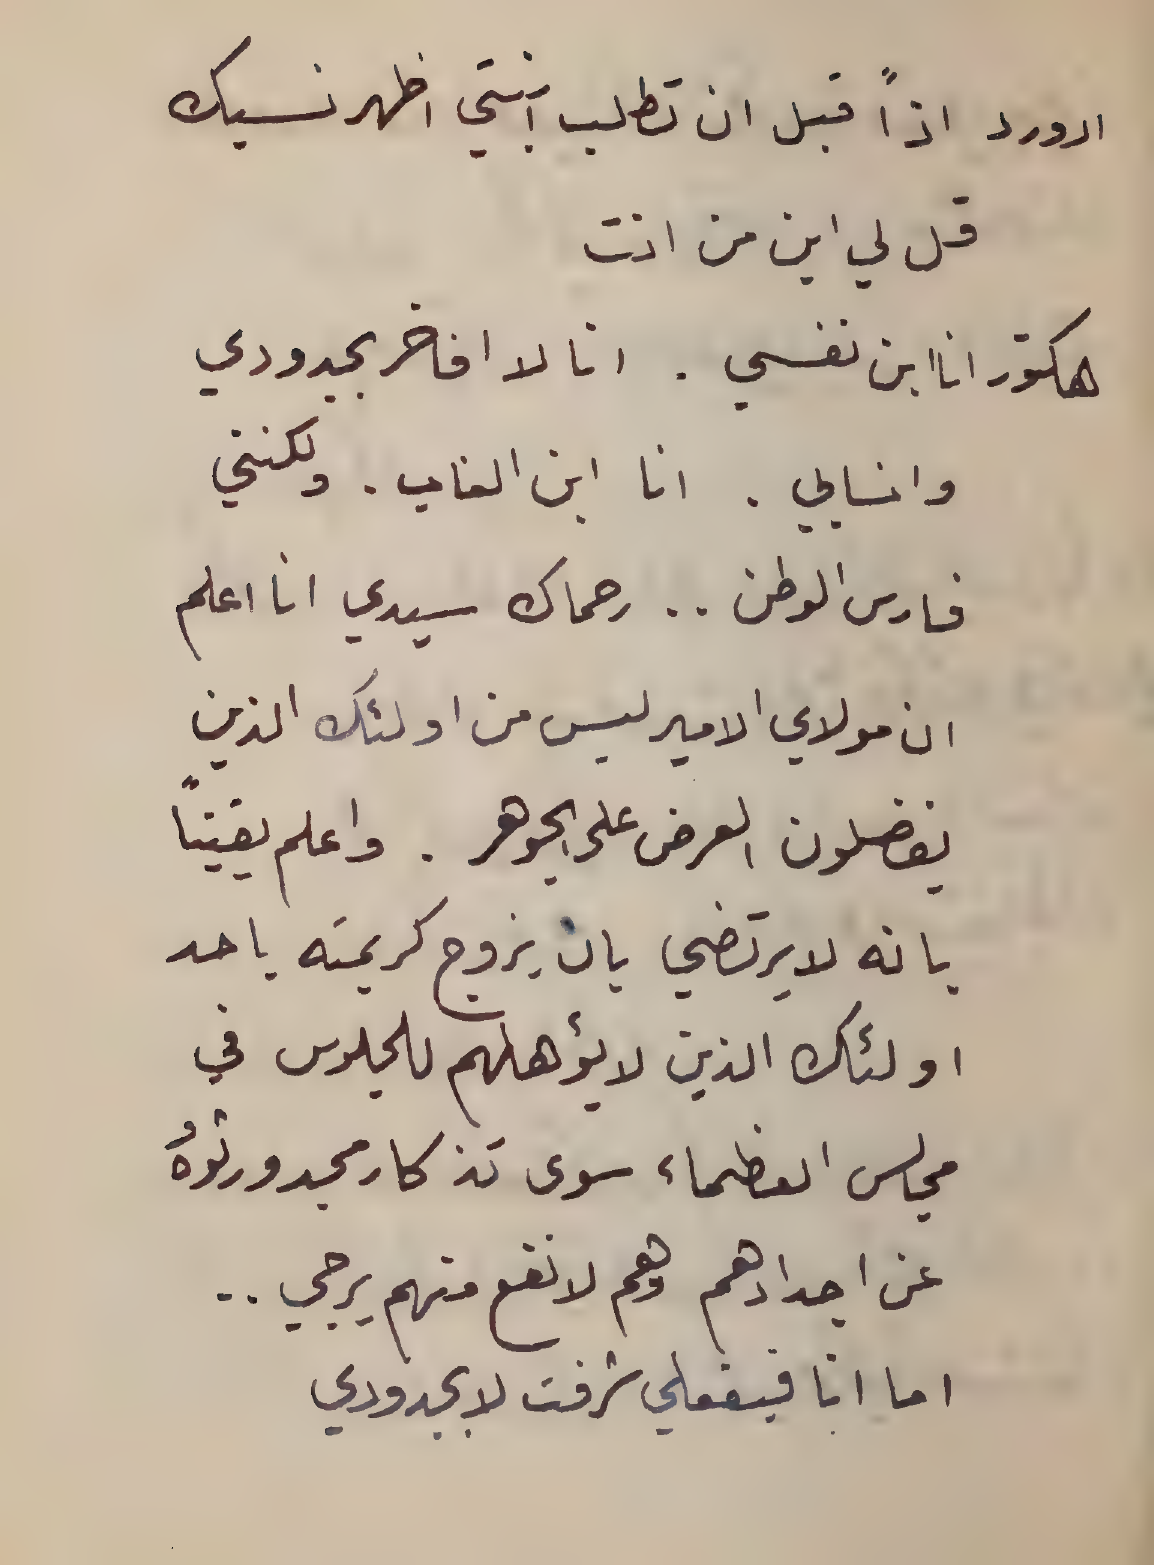 ادورد اذاً قبل ان تطلب ابنتي اظهر نسبك
قل لي ابن من انت
هكتور انا ابن نفسي . انا لا افاخر بجدودي
وانسابي . انا ابن الغاب . ولكنني
فارس الوطن .. رحماك سيدي انا اعلم
ان مولاي الامير ليس من اولئك الذين
يفضلون العرض على الجوهر . واعلم يقيناً
بانه لا يرتضي بان يزوج كريمته باحد
اولئك الذين لا يؤهلهم للجلوس في
مجالس العظماء سوى تذكار مجد ورثوهُ
عن اجدادهم وهم لا نفع منهم يرجى ..
اما انا فبفعلي شرفت لا بجدودي